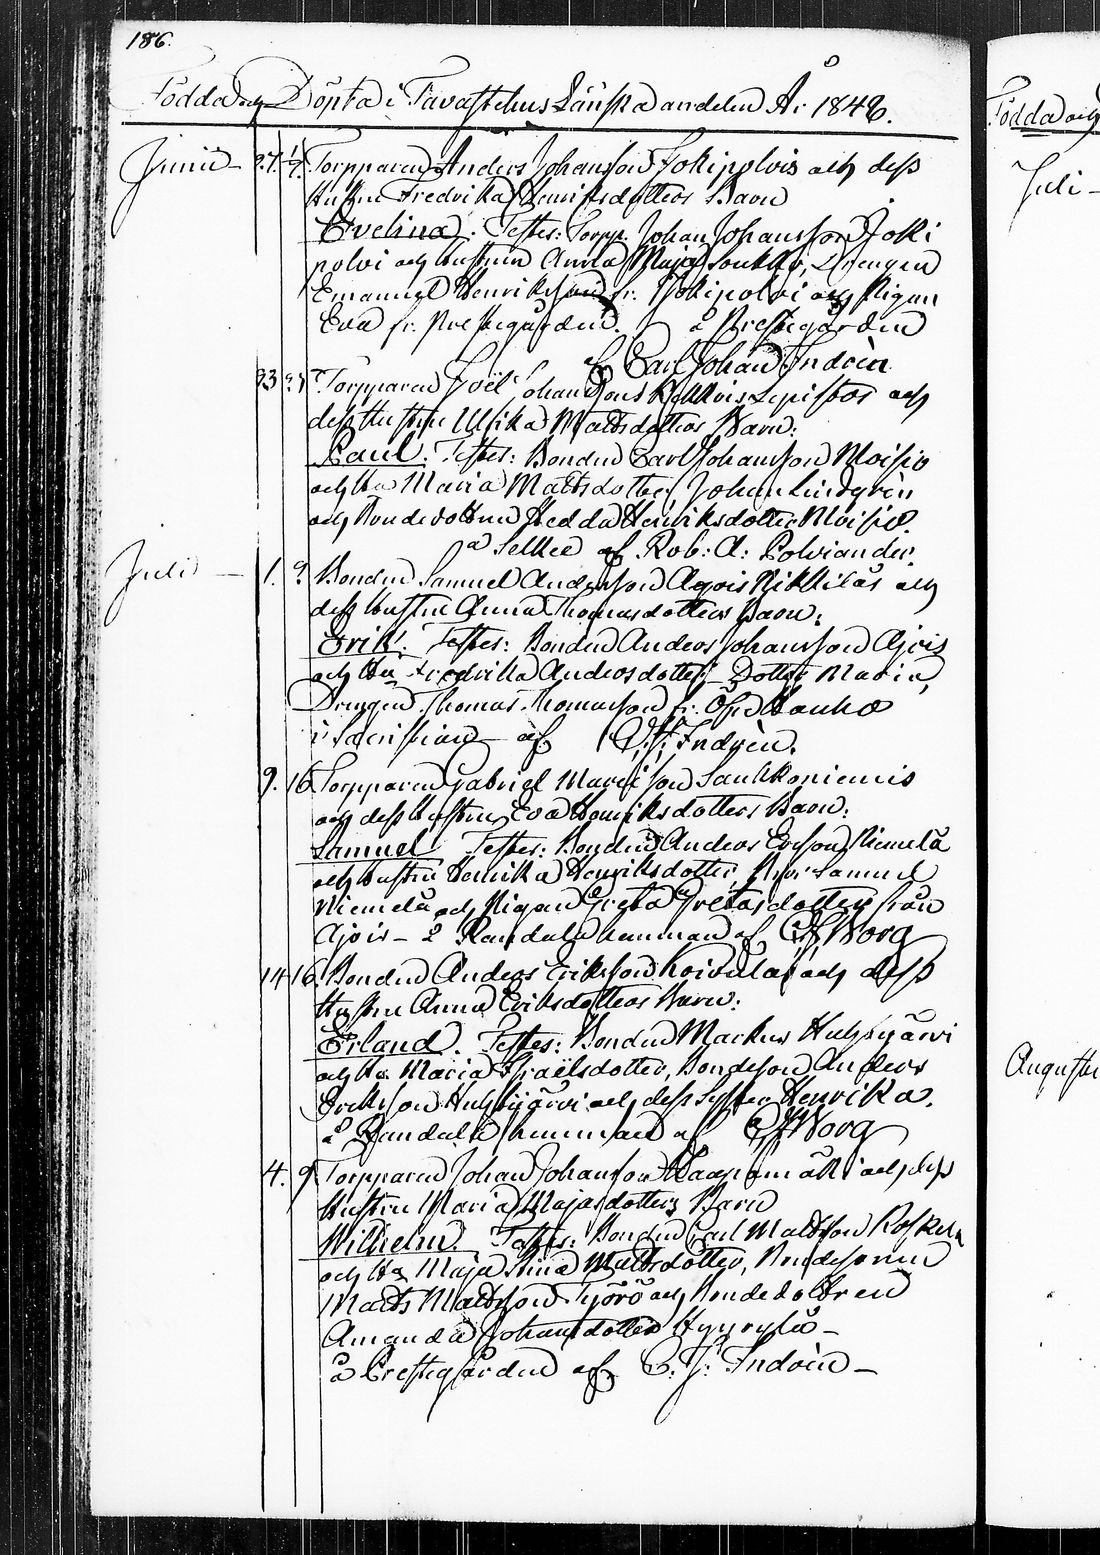 186.
Födda och Döpta i Tavastehus Länska andelen År 1848.
Junii 27. 1/7 Torpparen Anders Johansson Jokipolvis och dess
Hustru Fredrika Henriksdotters Barn
Evelina. Testes: Torpp. Johan Johansson Joki
polvi och hustrun Anna Maja Soukko, Drengen
Emanuel Henriksson fr. Jokipolvi och Pigan
Eva fr. Prestegården. å Prestegården
af Carl Johan Indrén
23 Torpparen Joël Johanssons Lepistös och
dess Hustru Ulrika Mattsdotters Barn:
Paul. Testes: Bonden Carl Johansson Moisio
och Hu Maria Mattsdotter, Johan Lindgrén
och Bondedottren Hedda Henriksdotter Moisio.
af Rob: A: Polviander.
Juli 1. 2 Bonden Samuel Andersson Ajois Nikkiläs och
dess hustru Anna Thomasdotters Barn:
Erik. Testes: Bonden Anders Johansson Ajois
och Hu Fredrika Andersdotter, Dotter Maria,
Drengen Thomas Thomasson fr. Öfre Hanho
i Sacristian af C. J. Indrén.
9. 16 Torpparen Gabriel Mattsson Saukkoniemis
och dess Hustru Eva Henriksdotters Barn:
Samuel Testes: Bonden Anders Ersson Niemelä
och hustru Henrika Henriksdotter, Samuel
Niemelä och Pigan Greta Gretasdotter från
Ajois å Randala hemman af Borg
14 16. Bonden Anders Eriksson Koivulas och dess
Hustru Anna Eriksdotters Barn:
Erland. Testes: Bonden Markus Huhtijärvi
och Hu Maria Israëlsdotter, Bondeson Anders
Eriksson Huhtijärvi och dess Syster Henrika.
å Randala hemman af Borg
4. 9 Torpparen Johan Johansson Haapamäki och dess
Hustru Maria Majasdotters Barn
Wilhelm. Testes: Bonden Carl Mattsson
och Hu Maja Stina Mattsdotter, Bondesonen
Matts Mattsson Työrö och Bondedottren
Amanda Johansdotter Hyyrylä
å Prestegården af C. J. Indrén
Födda och
Juli
Augusti